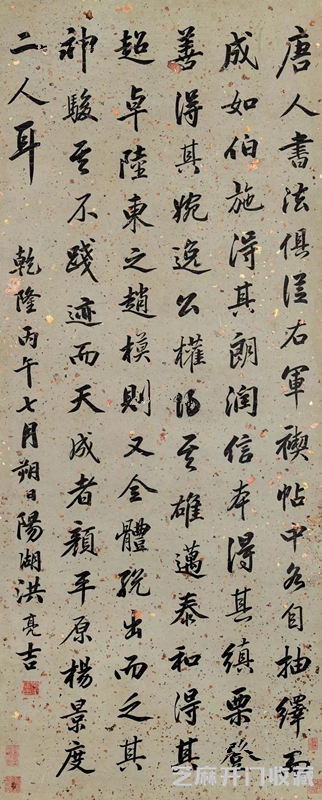 唐人書法俱從右軍禊帖中各自抽繹而
成如伯施得其朗潤信本得其縝栗登
善得其婉逸公權得其雄邁泰和得其
超卓陸東之趙模則又全體脫出而之其
神駿其不踐迹而天成者顏平原楊景度
二人耳
乾隆丙午七月朔日陽湖洪亮吉
芝麻开门收藏